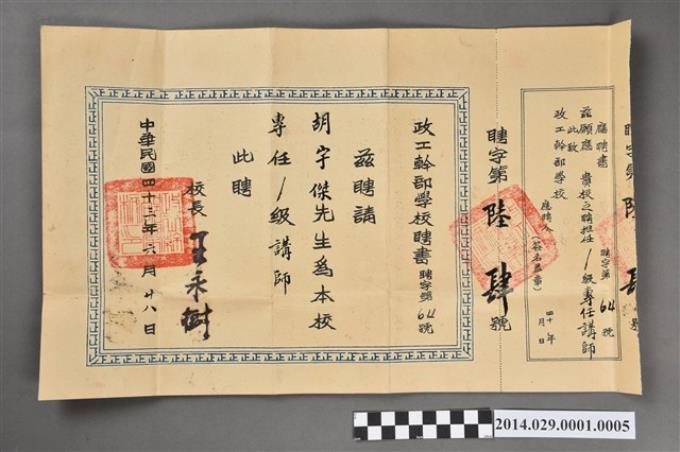 應聘書 聘字第64號
茲願應 貴校之聘擔任1級專任講師
此致
政工幹部學校
應聘人 (簽名蓋章)
四十 年 月 日
聘字第 陸 肆 號
政工幹部學校聘書 聘字第64號
茲聘請
胡字傑先生為本校
專任1級講師
此聘
校長 王永樹
中華民國四十三年六月廿八日
2014.029.0001.0005